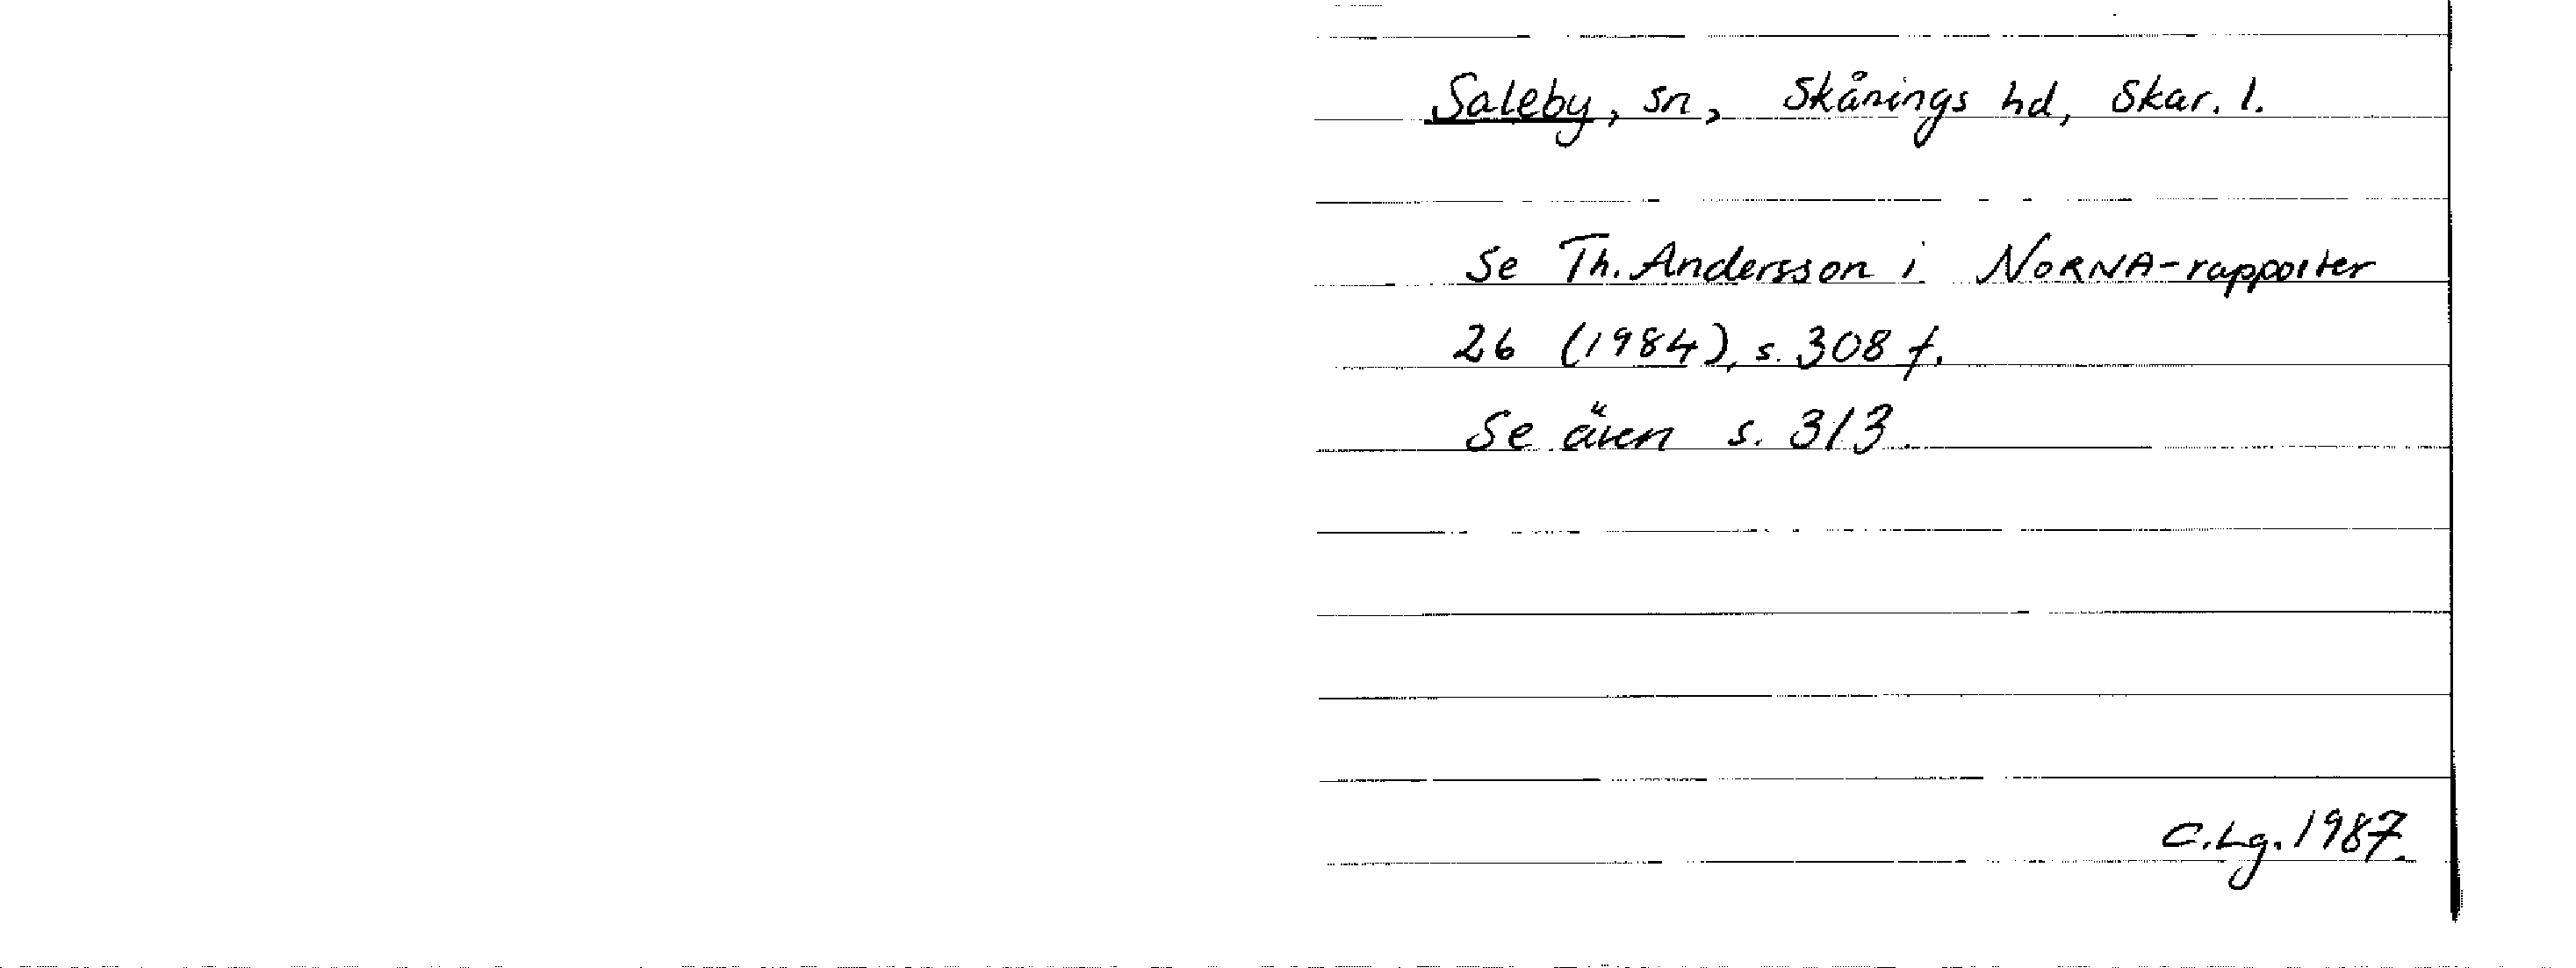 Saleby, sn, Skånings hd, Skar. l.
Se Th. Andersson i NORNA-rapporter
26 (1984), s. 308 f.
Se även s. 313.
C.Lg. 1987.